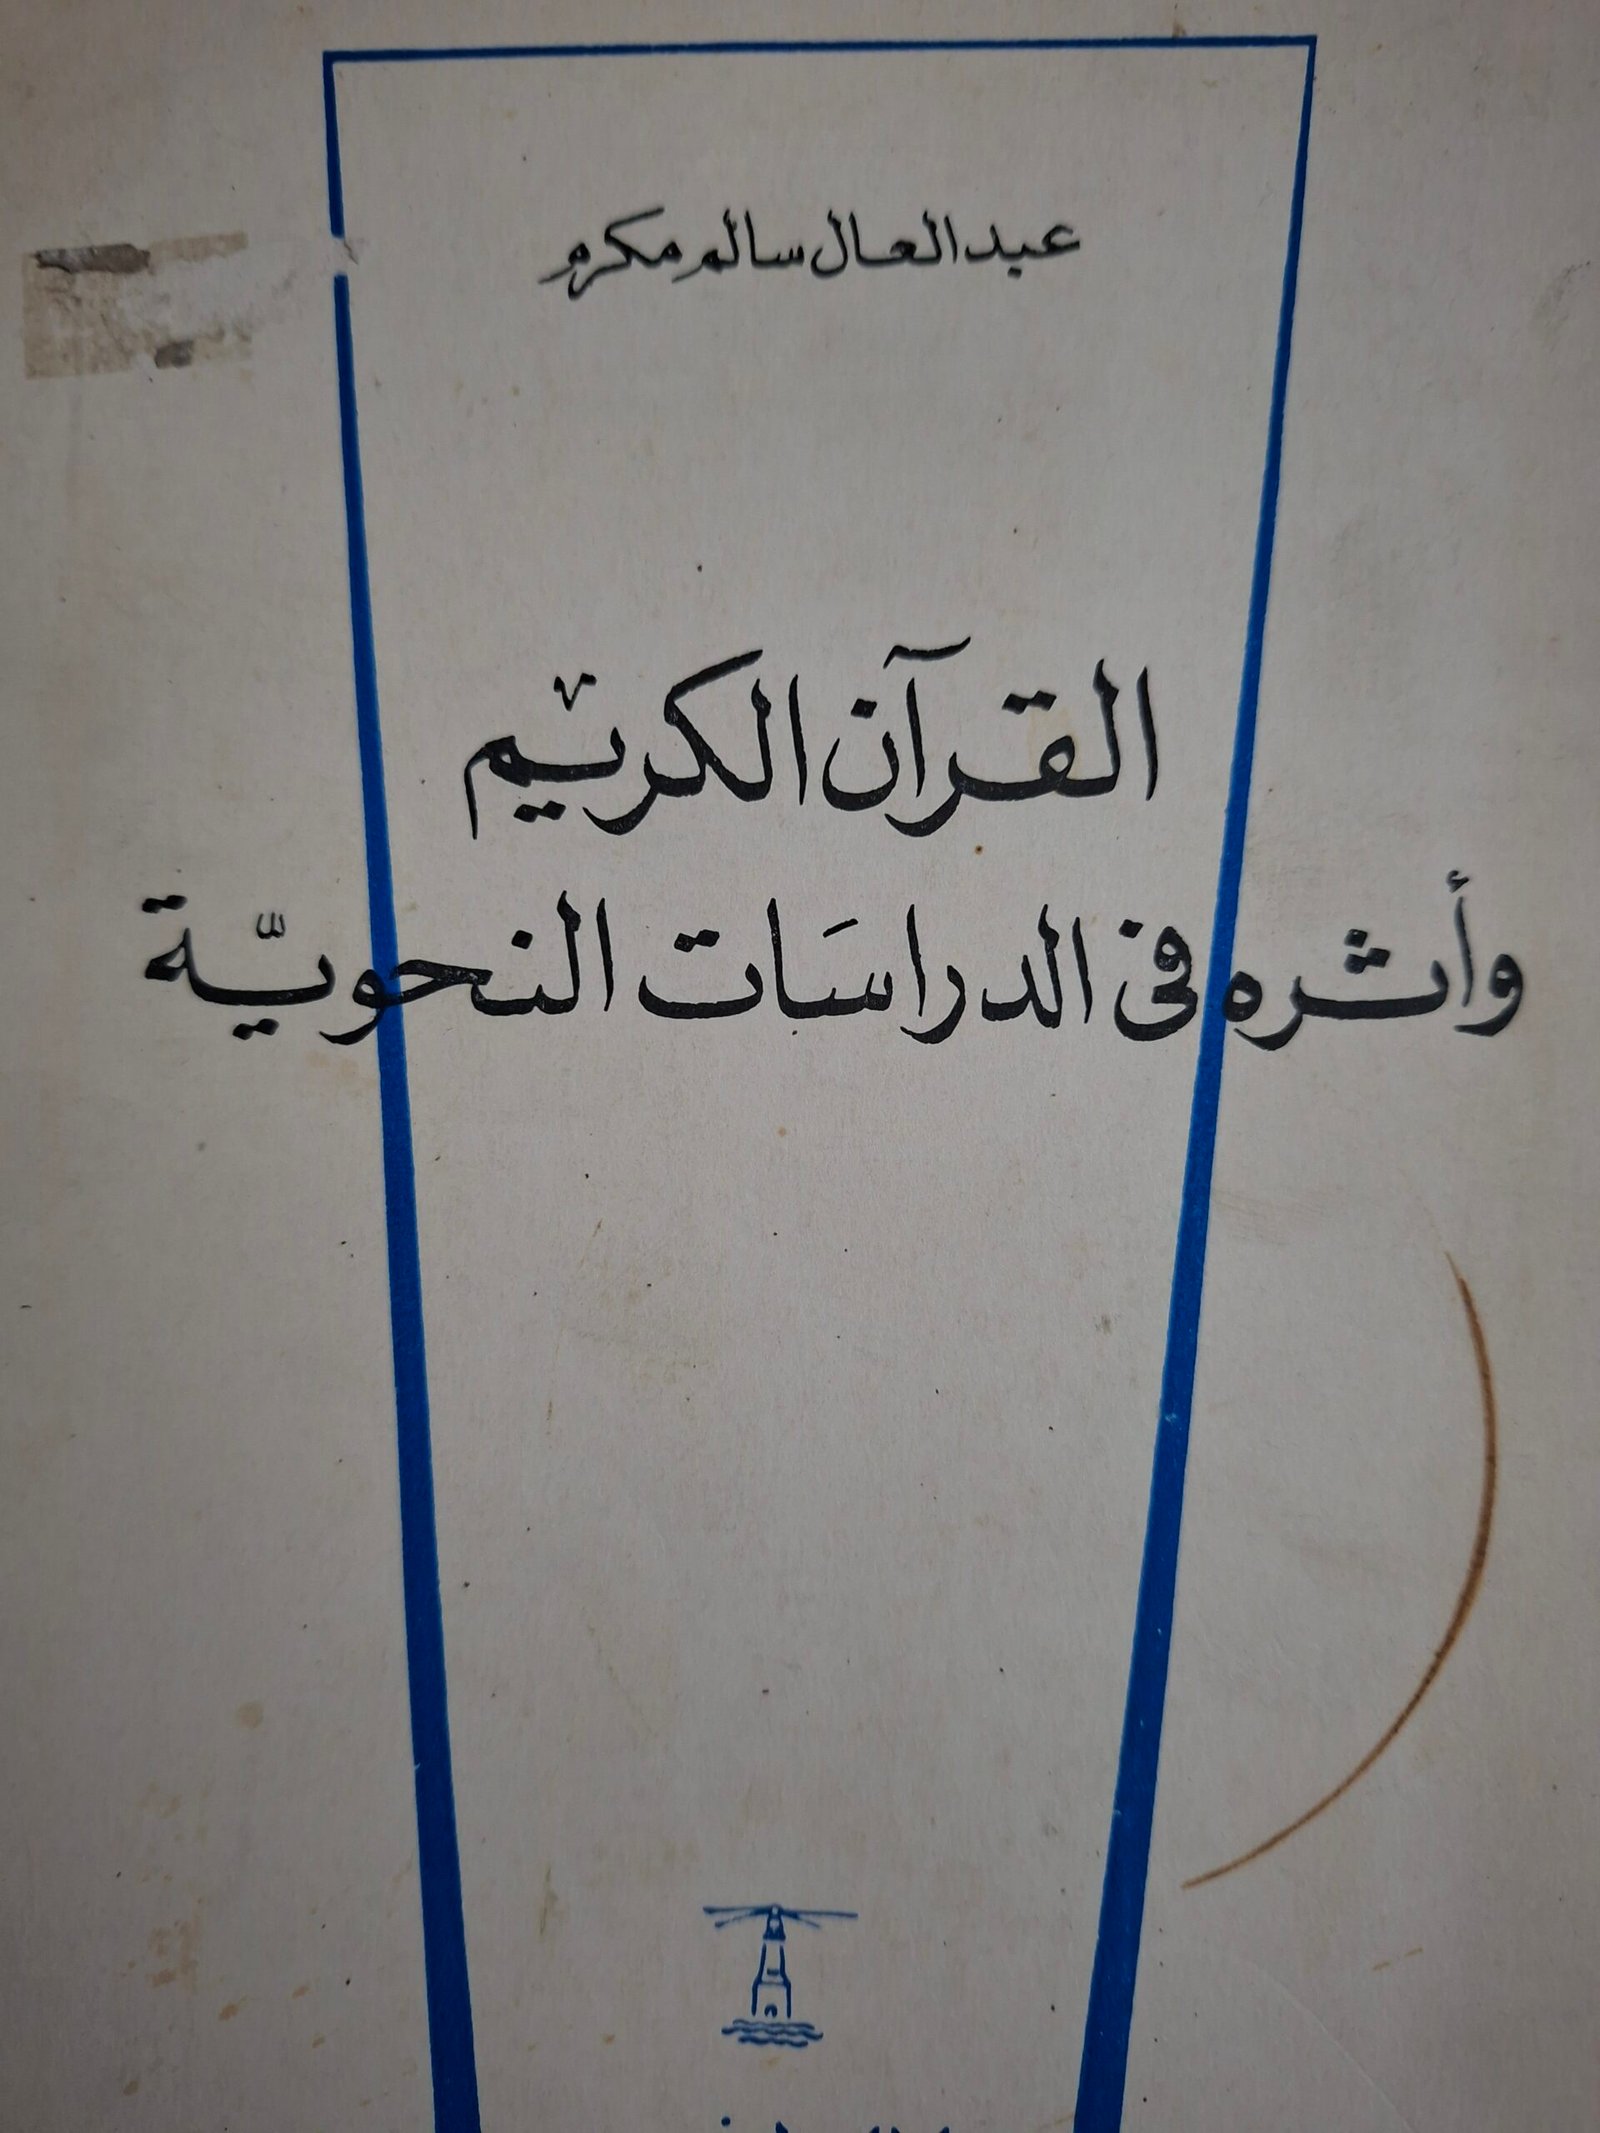 عبد العال سالم مكرم
القرآن الكريم
وأثره فى الدراسَات النحويّة